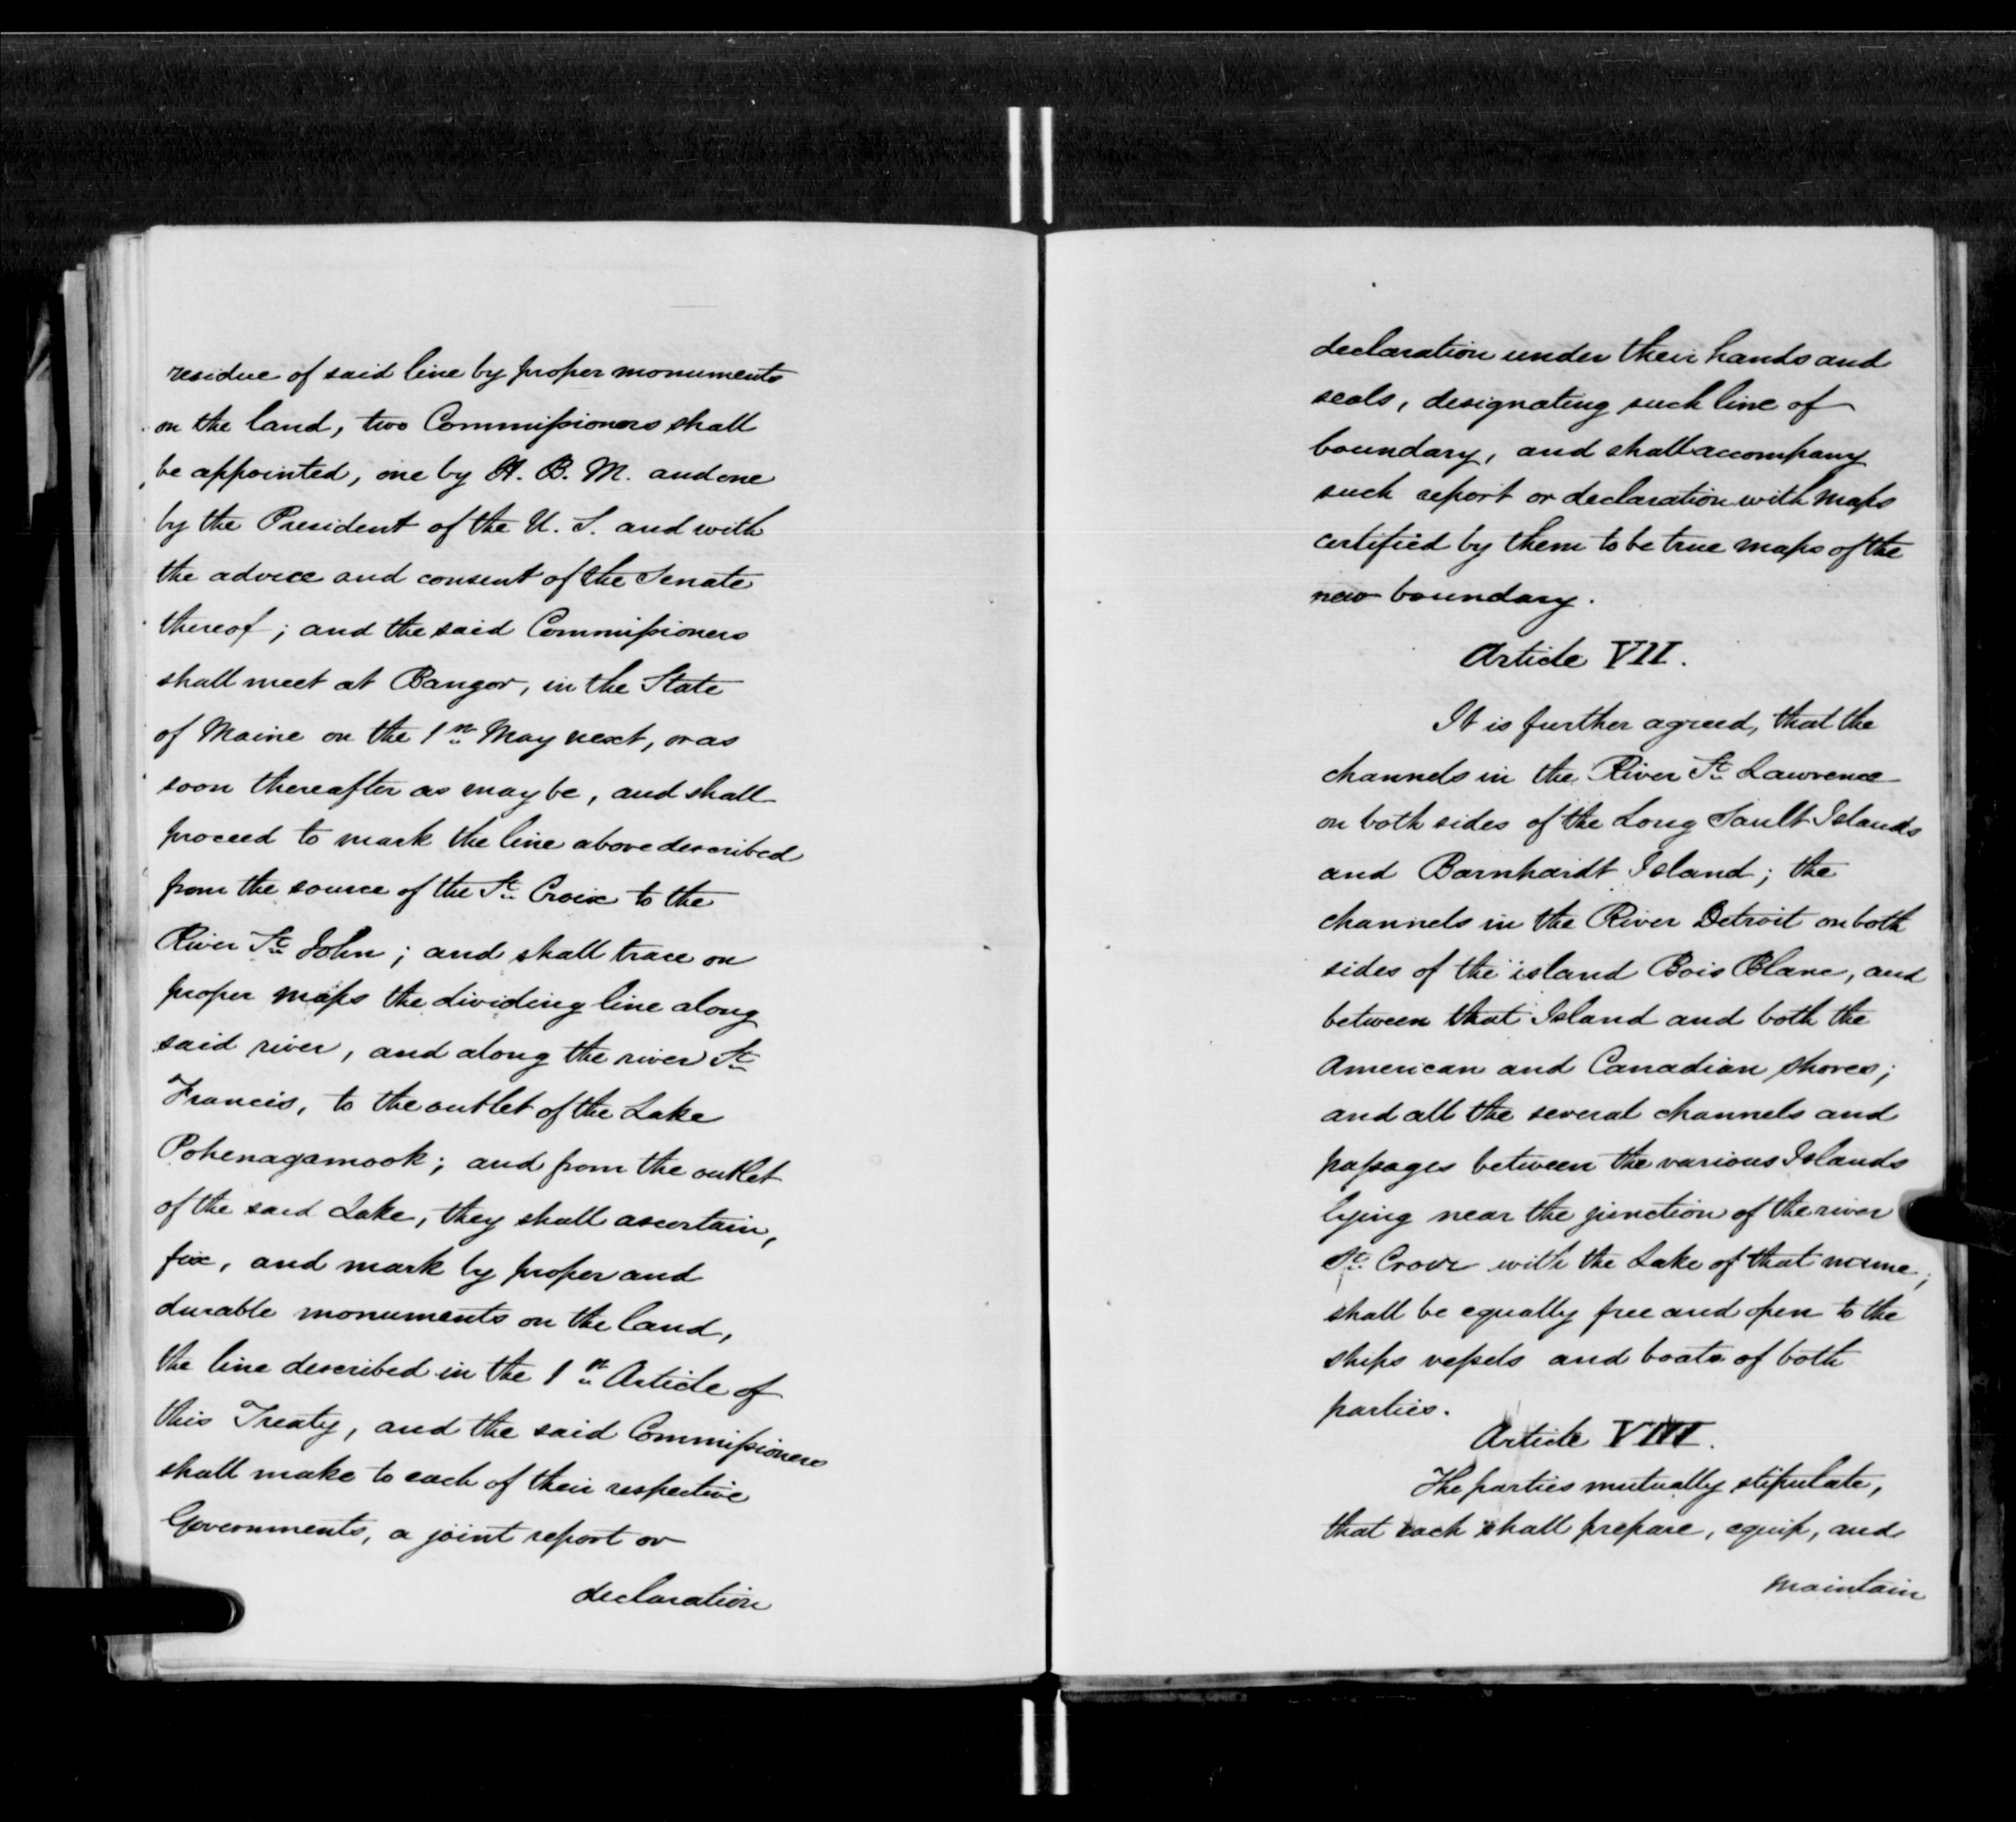 residue of said line by proper monuments
on the land, two Commissioners shall
be appointed, one by H. B. M. and one
by the President of the U. S. and with
the advice and consent of the Senate
thereof; and the said Commissioners
shall meet at Bangor, in the State
of Maine on the 1st May next, or as
soon thereafter as may be, and shall
proceed to mark the line above described
from the source of the St Croix to the
River St John; and shall trace on
proper maps the dividing line along
said river, and along the river St
Francis, to the outlet of the Lake
Pohenagamook; and from the outlet
of the said Lake, they shall ascertain,
fix, and mark by proper and
durable monuments on the land,
the line described in the 1st Article of
this Treaty, and the said Commissioners
shall make to each of their respective
Governments, a joint report or
declaration
declaration under their hands and
seals, designating such line of
boundary, and shall accompany
such report or declaration with maps
certified by them to be true maps of the
new boundary.
Article VII.
It is further agreed, that the
channels in the River St Lawrence
on both sides of the Long Sault Islands
and Barnhardt Island; the
channels in the River Detroit on both
sides of the island Bois Blanc, and
between that Island and both the
American and Canadian shores;
and all the several channels and
passages between the various Islands
lying near the junction of the river
St with the Lake of that name;
shall be equally free and open to the
ships vessels and boats of both
parties.
Article VIII.
The parties mutually stipulate,
that each shall prepare, equip, and
maintain